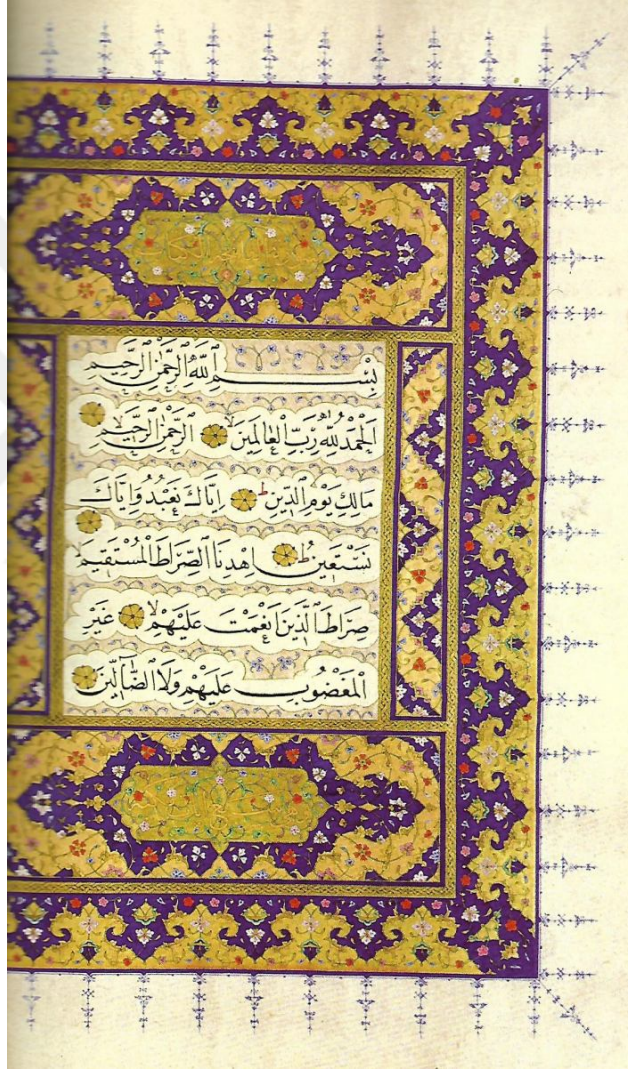 بِسْمِ اللّٰهِ الرَّحْمٰنِ الرَّحِيمِ
اَلْحَمْدُ لِلّٰهِ رَبِّ الْعَالَمِينَۙ الرَّحْمٰنِ الرَّحِيمِۙ
مَالِكِ يَوْمِ الدِّينِۜ اِيَّاكَ نَعْبُدُ وَاِيَّاكَ
نَسْتَعِينُۜ اِهْدِنَا الصِّرَاطَ الْمُسْتَقِيمَۙ
صِرَاطَ الَّذِينَ اَنْعَمْتَ عَلَيْهِمْۙ غَيْرِ
الْمَغْضُوبِ عَلَيْهِمْ وَلَا الضَّالِّينَ